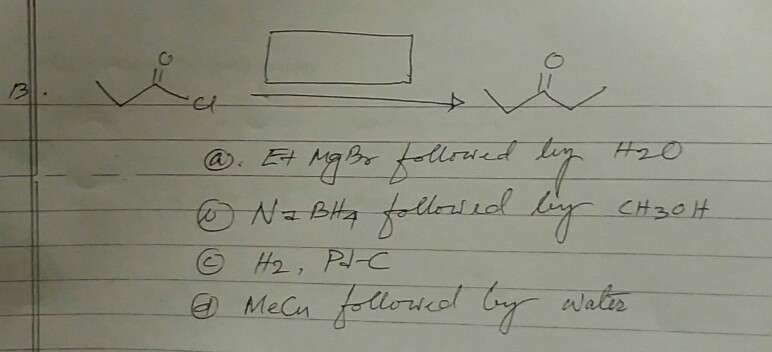 13.
O
Cl
O
a. Et MgBr followed by H2O
b NaBH4 followed by CH3OH
c H2, Pd-C
d MeCu followed by water